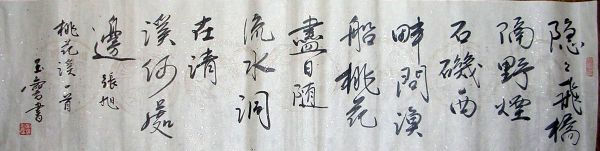 隐々飛橋
隔野煙
石磯西
畔問漁
船桃花
盡日随
流水洞
在清
溪何處
邊
張旭
桃花溪一首
玉書